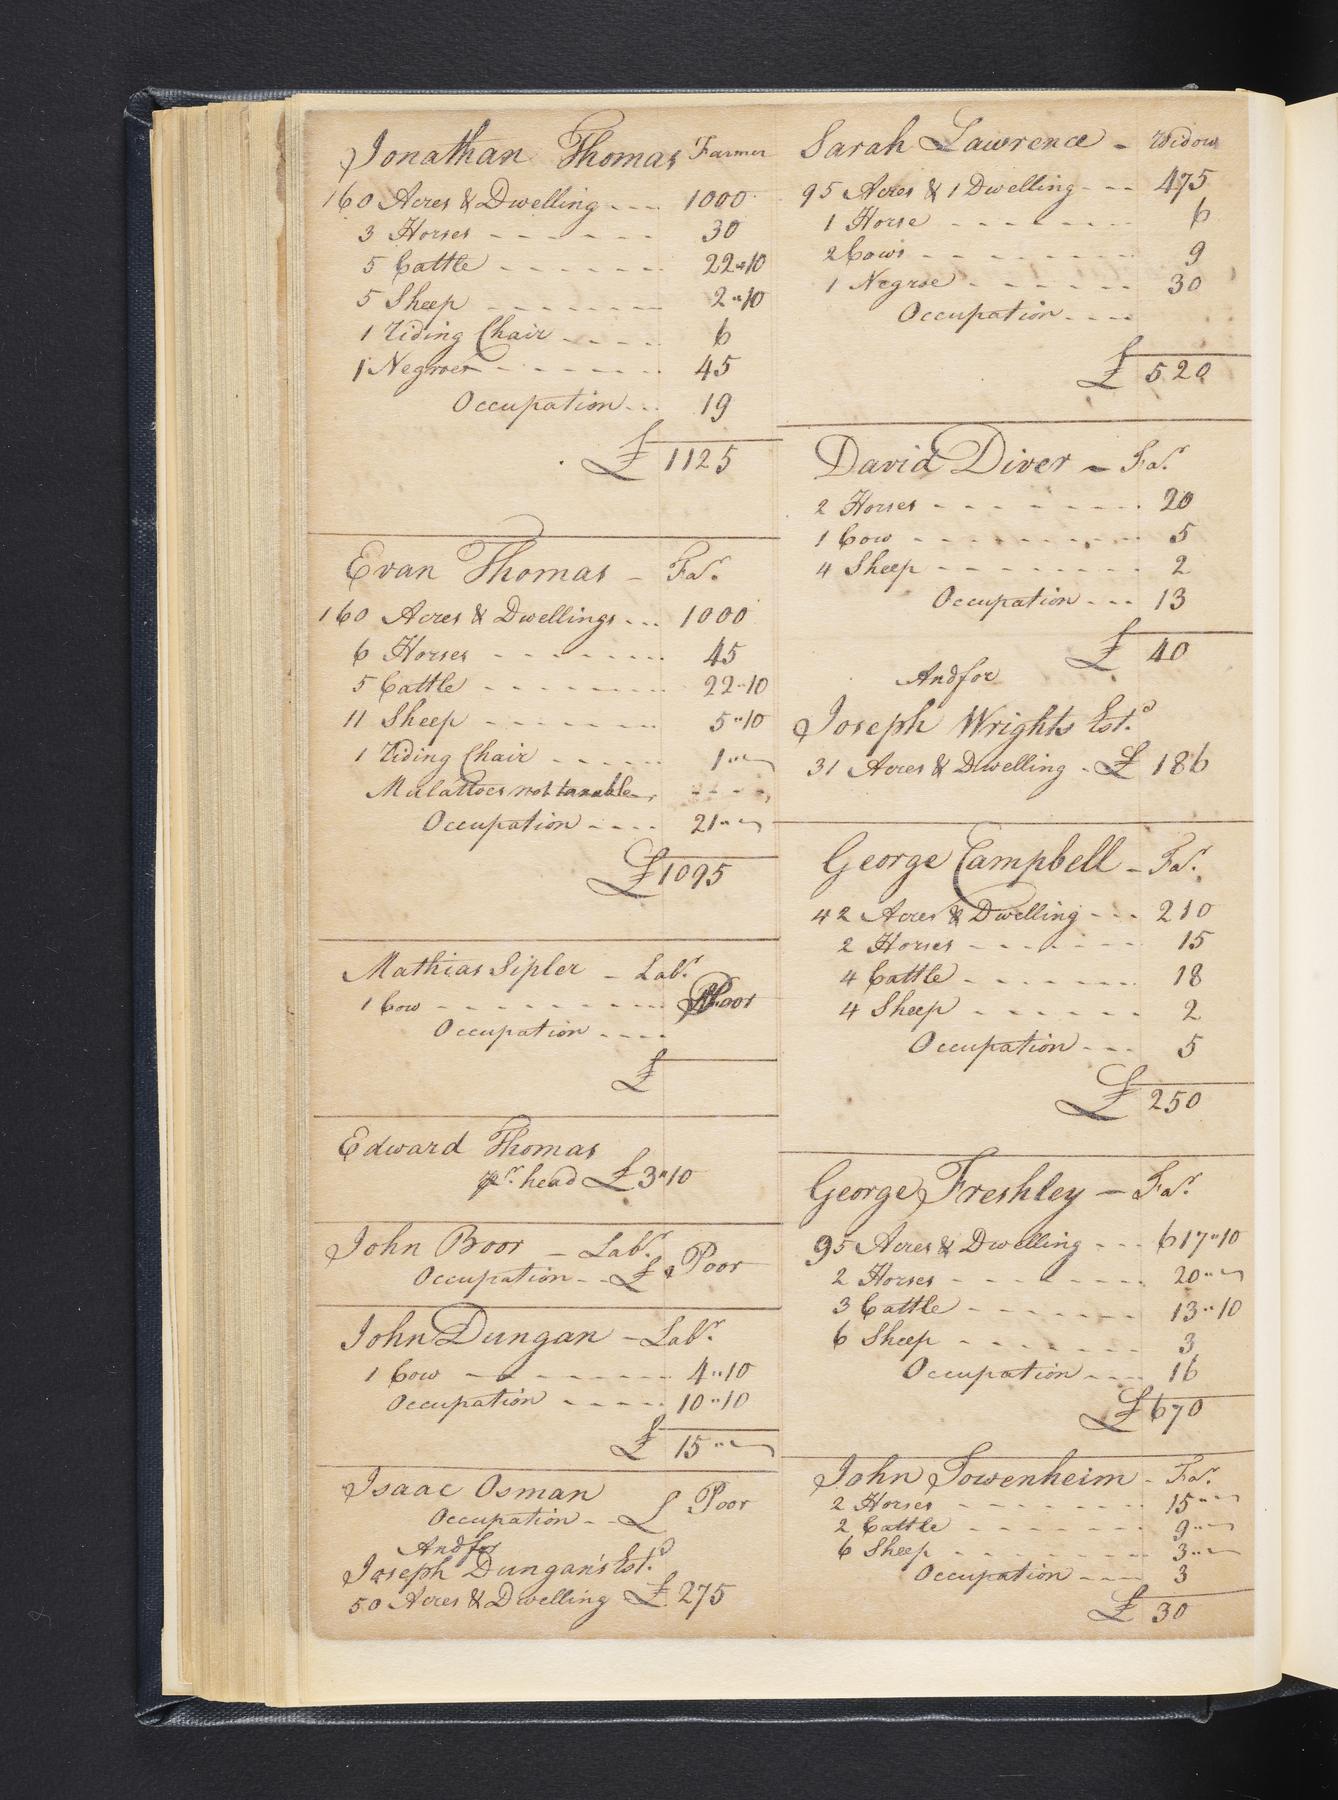 Jonathan Thomas Farmer
160 Acres & Dwelling --- 1000
3 Horses - - - - - - 30
5 Cattle - - - - - - 22"10
5 Sheep - - - - - - 2"10
1 Riding Chair - - - - 6
1 Negroes - - - - - - 45
Occupation - - - 19
£ 1125
Evan Thomas - Far.
160 Acres & Dwellings --- 1000
6 Horses - - - - - - 45
5 Cattle - - - - - - 22"10
11 Sheep - - - - - - 5"10
1 Riding Chair - - - - - 1"~
Mulattoes not taxable - - - -
Occupation - - - - 21"~
£ 1095
Mathias Sipler - Labr.
1 Cow - - - - - - - - Poor
Occupation - - - -
£
Edward Thomas
pr. head £3"10
John Boor - Labr.
Occupation - - £ Poor
John Dungan - Labr.
1 Cow - - - - - - - - 4"10
Occupation - - - - 10"10
£ 15"~
Isaac Osman
Occupation - - £ Poor
And for
Joseph Dungan's Estd.
50 Acres & Dwelling £ 275
Sarah Lawrence - Widow
95 Acres & 1 Dwelling - - - 475
1 Horse - - - - - - 6
2 Cows - - - - - - - 9
1 Negroe - - - - - - 30
Occupation - - - -
£ 520
David Diver - Far.
2 Horses - - - - - - - 20
1 Cow - - - - - - - - 5
4 Sheep - - - - - - - 2
Occupation - - - 13
£ 40
And for
Joseph Wrights Estd.
31 Acres & Dwelling - £ 186
George Campbell - Far.
42 Acres & Dwelling - - - 210
2 Horses - - - - - - 15
4 Cattle - - - - - - 18
4 Sheep - - - - - - 2
Occupation - - - 5
£ 250
George Freshley - Far.
95 Acres & Dwelling - - - 617"10
2 Horses - - - - - - - 20"~
3 Cattle - - - - - - - 13"10
6 Sheep - - - - - - 3
Occupation - - - - 16
£ 670
John Towenheim - Far.
2 Horses - - - - - - - 15"~
2 Cattle - - - - - - - 9"~
6 Sheep - - - - - - - 3"~
Occupation - - - - 3
£ 30